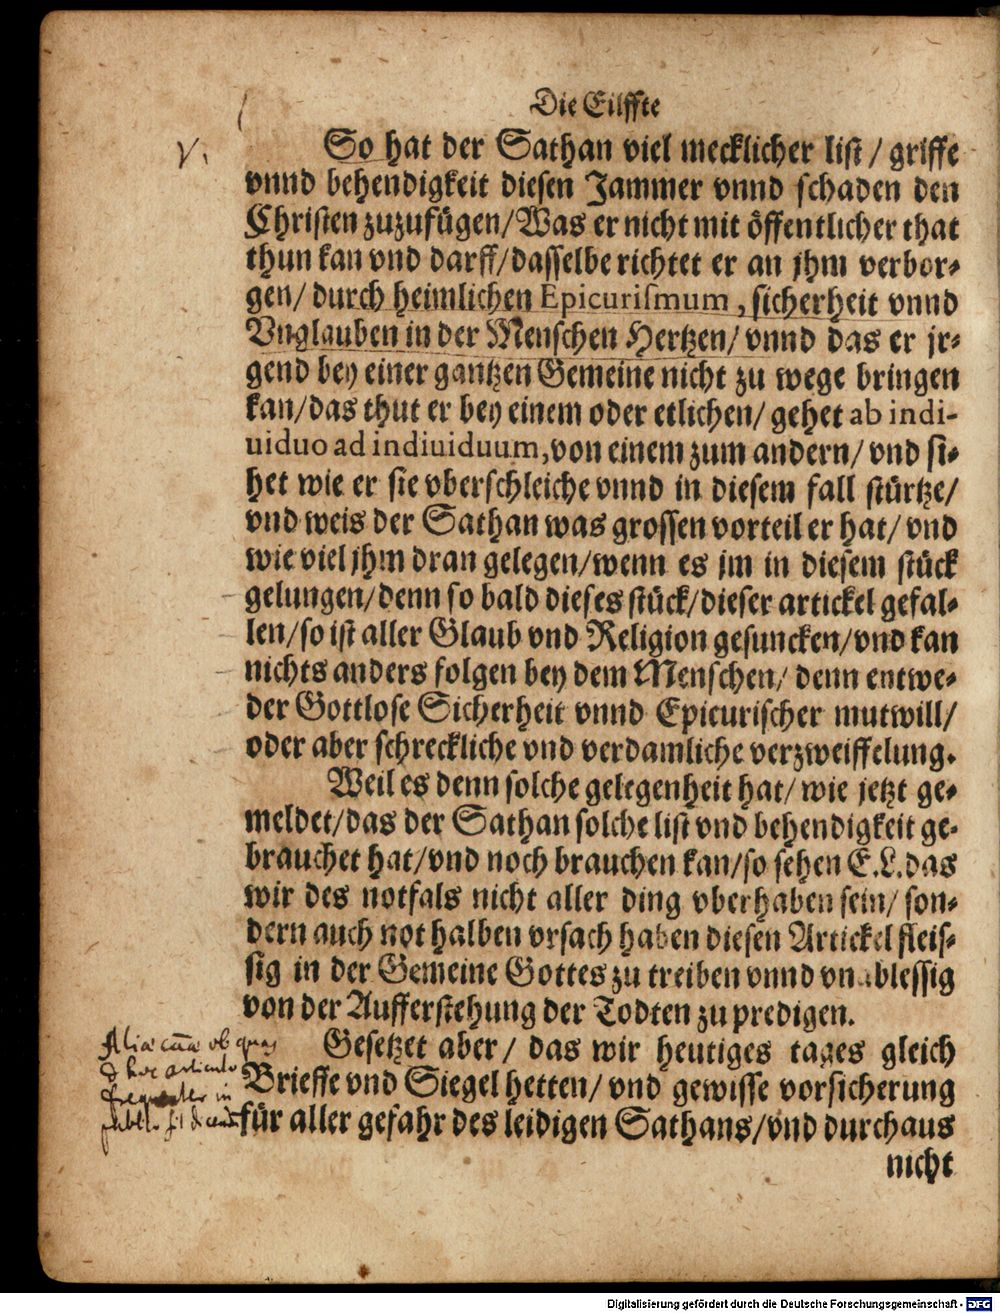 Die Eilffte
V.
So hat der Sathan viel mecklicher list / griffe
vnnd behendigkeit diesen Jammer vnnd schaden den
Christen zuzufügen/Was er nicht mit öffentlicher that
thun kan vnd darff/dasselbe richtet er an jhm verbor-
gen/ durch heimlichen Epicurismum, sicherheit vnnd
Vnglauben in der Menschen Hertzen/ vnnd das er jr-
gend bey einer gantzen Gemeine nicht zu wege bringen
kan/das thut er bey einem oder etlichen/ gehet ab indi-
uiduo ad indiuiduum,von einem zum andern/ vnd si-
het wie er sie vberschleiche vnnd in diesem fall stürtze/
vnd weis der Sathan was grossen vorteil er hat/ vnd
wie viel jhm dran gelegen/wenn es jm in diesem stück
gelungen/denn so bald dieses stück/dieser artickel gefal-
len/so ist aller Glaub vnd Religion gesuncken/vnd kan
nichts anders folgen bey dem Menschen/ denn entwe-
der Gottlose Sicherheit vnnd Epicurischer mutwill/
oder aber schreckliche vnd verdamliche verzweiffelung.
Weil es denn solche gelegenheit hat/ wie jetzt ge-
meldet/das der Sathan solche list vnd behendigkeit ge-
brauchet hat/vnd noch brauchen kan/so sehen E.L.das
wir des notfals nicht aller ding vberhaben sein/ son-
dern auch not halben vrsach haben diesen Artickel fleis-
sig in der Gemeine Gottes zu treiben vnnd vnablessig
von der Aufferstehung der Todten zu predigen.
Gesetzet aber/ das wir heutiges tages gleich
Brieffe vnd Siegel hetten/ vnd gewisse vorsicherung
für aller gefahr des leidigen Sathans/vnd durchaus
nicht
Aliæ ob quas
hoc articulo
in
Digitalisierung gefördert durch die Deutsche Forschungsgemeinschaft - DFG